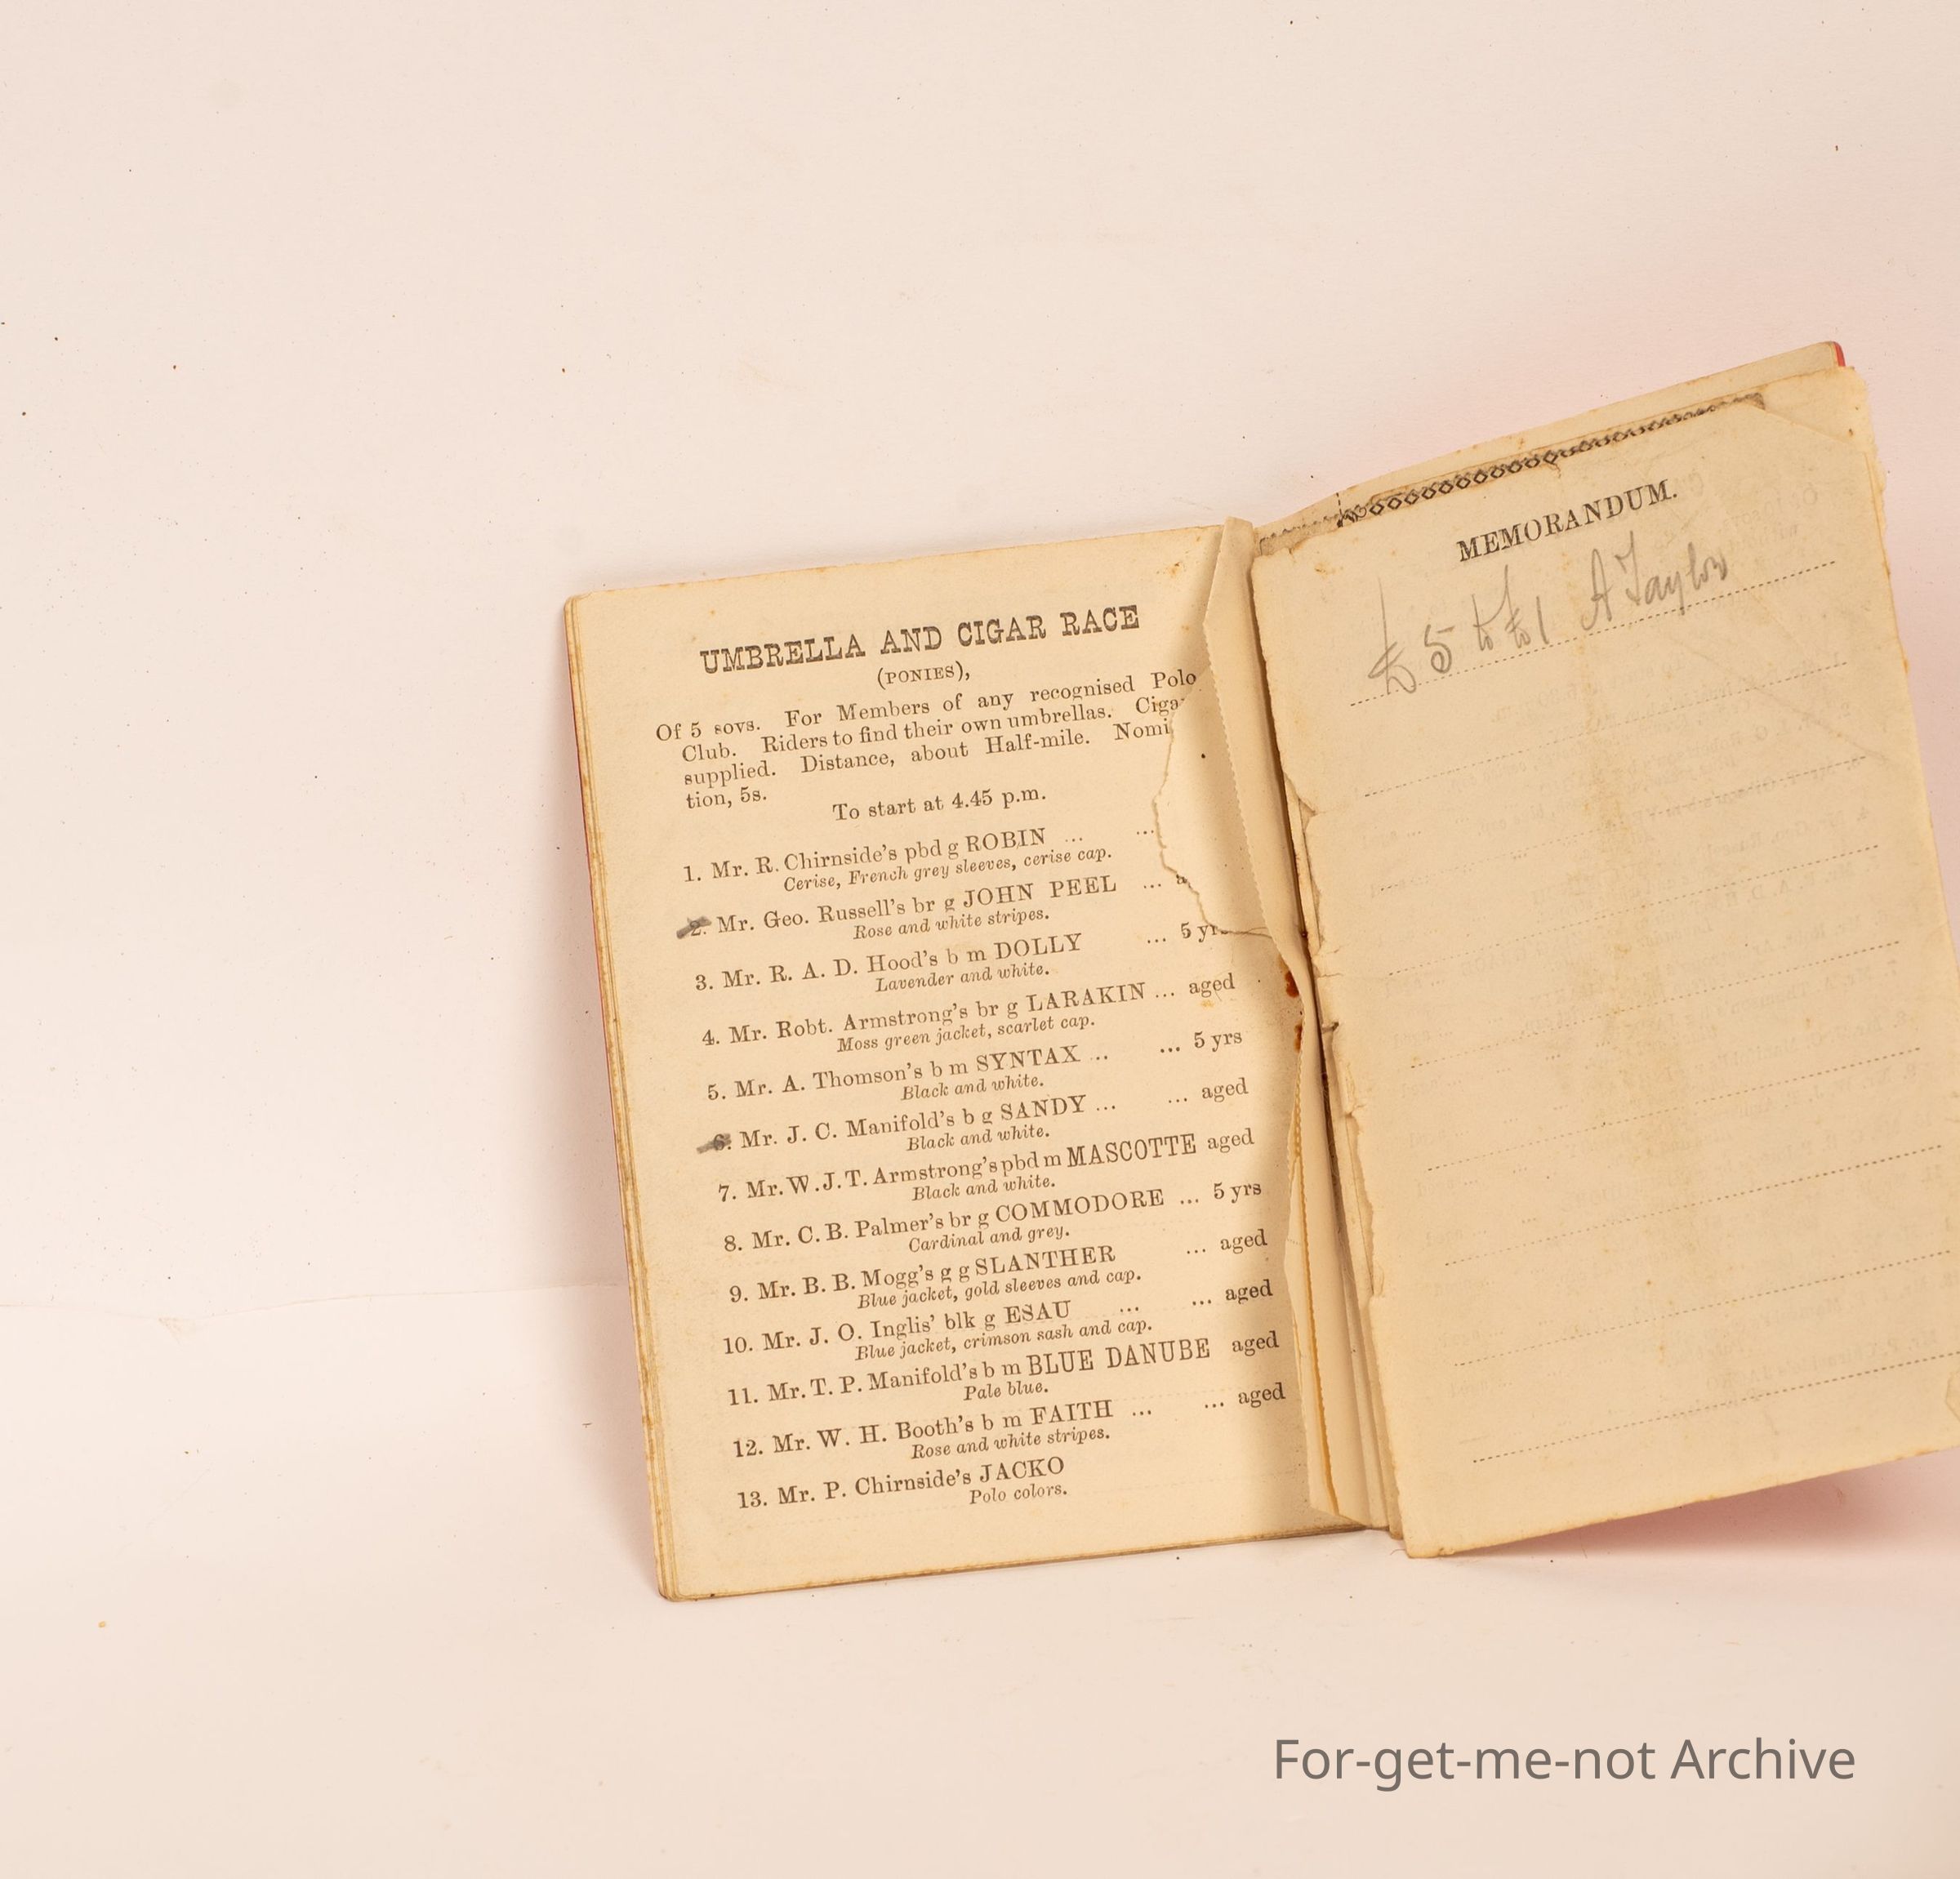 UMBRELLA AND CIGAR RACE
(PONIES),
Of 5 sovs. For Members of any recognised Polo
Club. Riders to find their own umbrellas. Ciga
supplied. Distance, about Half-mile. Nomi
tion, 5s.
To start at 4.45 p.m.
1. Mr. R. Chirnside's pbd g ROBIN ... ...
Cerise, French grey sleeves, cerise cap.
2. Mr. Geo. Russell's br g JOHN PEEL ... a
Rose and white stripes.
3. Mr. R. A. D. Hood's b m DOLLY ... 5 yrs
Lavender and white.
4. Mr. Robt. Armstrong's br g LARAKIN ... aged
Moss green jacket, scarlet cap.
5. Mr. A. Thomson's b m SYNTAX .. ... 5 yrs
Black and white.
6. Mr. J. C. Manifold's b g SANDY ... ... aged
Black and white.
7. Mr. W. J. T. Armstrong's pbd m MASCOTTE aged
Black and white.
8. Mr. C. B. Palmer's br g COMMODORE ... 5 yrs
Cardinal and grey.
9. Mr. B. B. Mogg's g g SLANTHER ... aged
Blue jacket, gold sleeves and cap.
10. Mr. J. O. Inglis' blk g ESAU ... ... aged
Blue jacket, crimson sash and cap.
11. Mr. T. P. Manifold's b m BLUE DANUBE aged
Pale blue.
12. Mr. W. H. Booth's b m FAITH ... ... aged
Rose and white stripes.
13. Mr. P. Chirnside's JACKO
Polo colors.
MEMORANDUM.
£5 to £1 A Taylor
For-get-me-not Archive